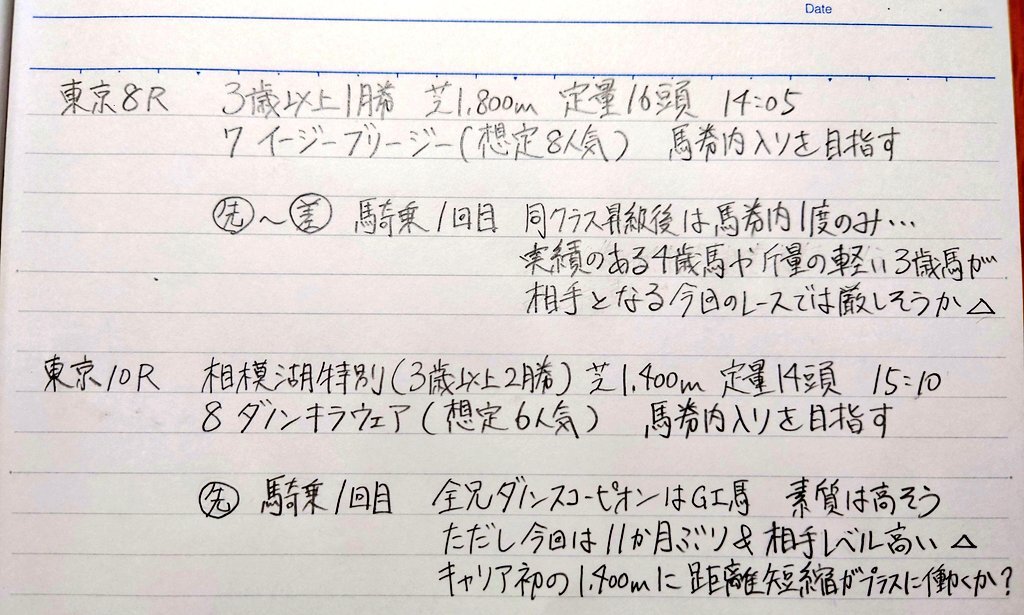 Date
東京8R 3歳以上1勝 芝1,800m 定量16頭 14:05
7 イージーブリージー(想定8人気) 馬券内入りを目指す
先〜差 騎乗1回目 同クラス昇級後は馬券内1度のみ…
実績のある4歳馬や斤量の軽い3歳馬が
相手となる今回のレースでは厳しそうか△
東京10R 相模湖特別(3歳以上2勝) 芝1,400m 定量14頭 15:10
8 ダノンキラウェア(想定6人気) 馬券内入りを目指す
先 騎乗1回目 全兄ダノンスコーピオンはGI馬 素質は高そう
ただし今回は11か月ぶり&相手レベル高い△
キャリア初の1,400mに距離短縮がプラスに働くか?